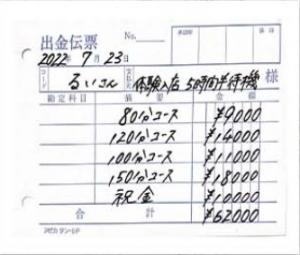 出金伝票 No.
2022年 7月 23日
コード るいさん 支払先 体験入店 5時間半待機 様
勘定科目 摘要 金額
80分コース ¥9000
120分コース ¥14000
100分コース ¥11000
150分コース ¥18000
祝金 ¥10000
合計 ¥62000